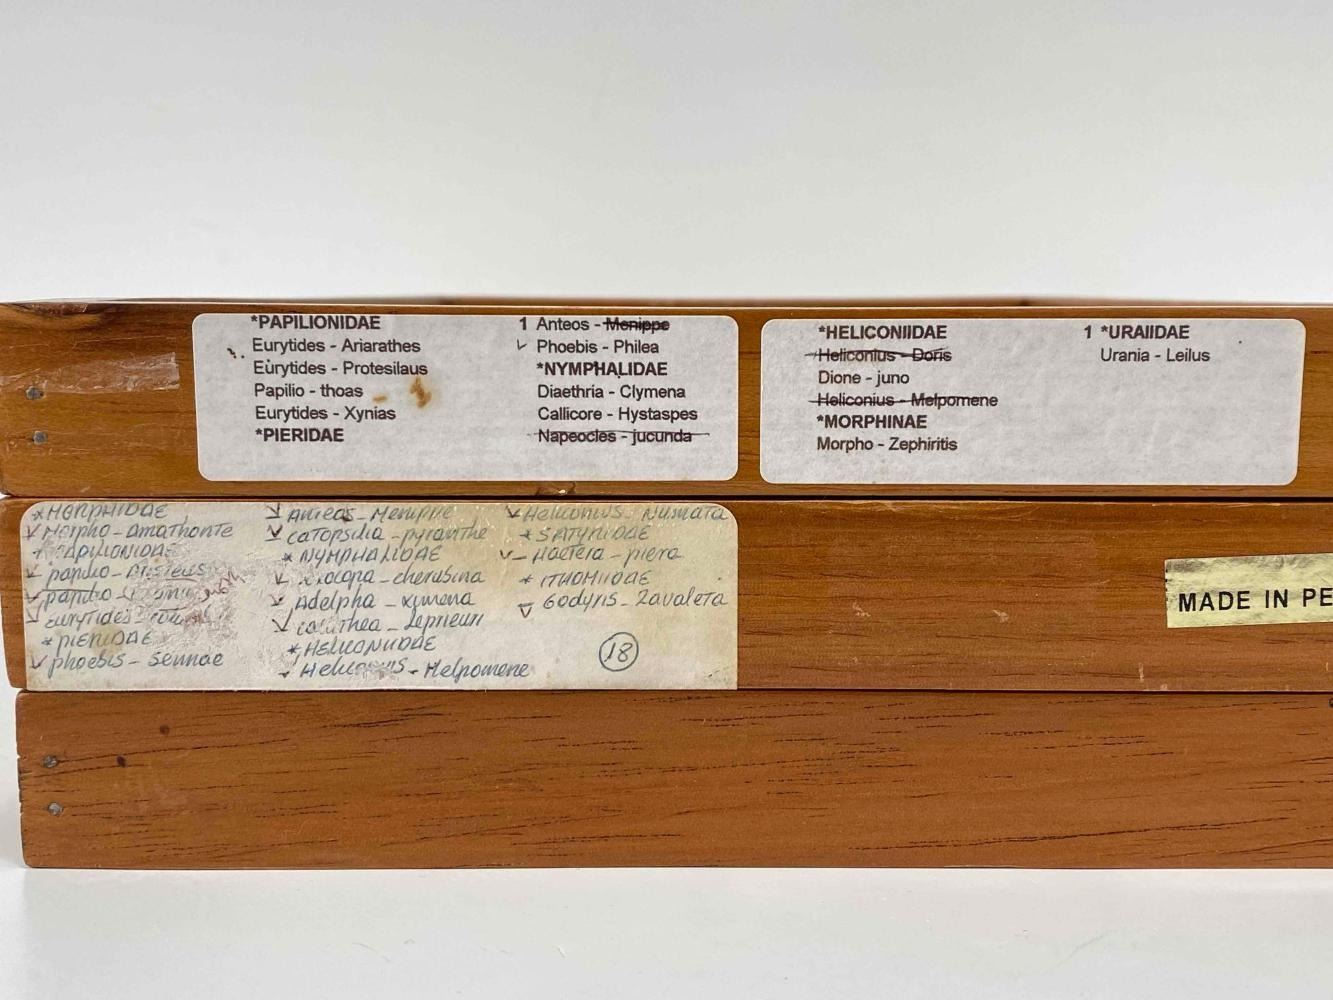 *PAPILIONIDAE
Eurytides - Ariarathes
Eurytides - Protesilaus
Papilio - thoas
Eurytides - Xynias
*PIERIDAE
1 Anteos - Menippe
✓ Phoebis - Philea
*NYMPHALIDAE
Diaethria - Clymena
Callicore - Hystaspes
Napeocles - jucunda
*HELICONIIDAE
Heliconius - Doris
Dione - juno
Heliconius - Melpomene
*MORPHINAE
Morpho - Zephiritis
1 *URAIIDAE
Urania - Leilus
*MORPHIDAE
✓ Morpho - Amathonte
*PAPILIONIDAE
✓ papilio -
✓ papilio -
✓ Eurytides -
*PIERIDAE
✓ phoebis - Sennae
✓ Anteos - Menippe
✓ catopsilia - pyranthe
*NYMPHALIDAE
✓ - cherubina
✓ Adelpha - ximena
✓ - Leprieuri
*HELICONIIDAE
✓ Heliconius - Melpomene
✓ Heliconius - Numata
*SATYRIDAE
✓ - Haetera - piera
*ITHOMIIDAE
✓ Godyris - Zavaleta
18
MADE IN PE